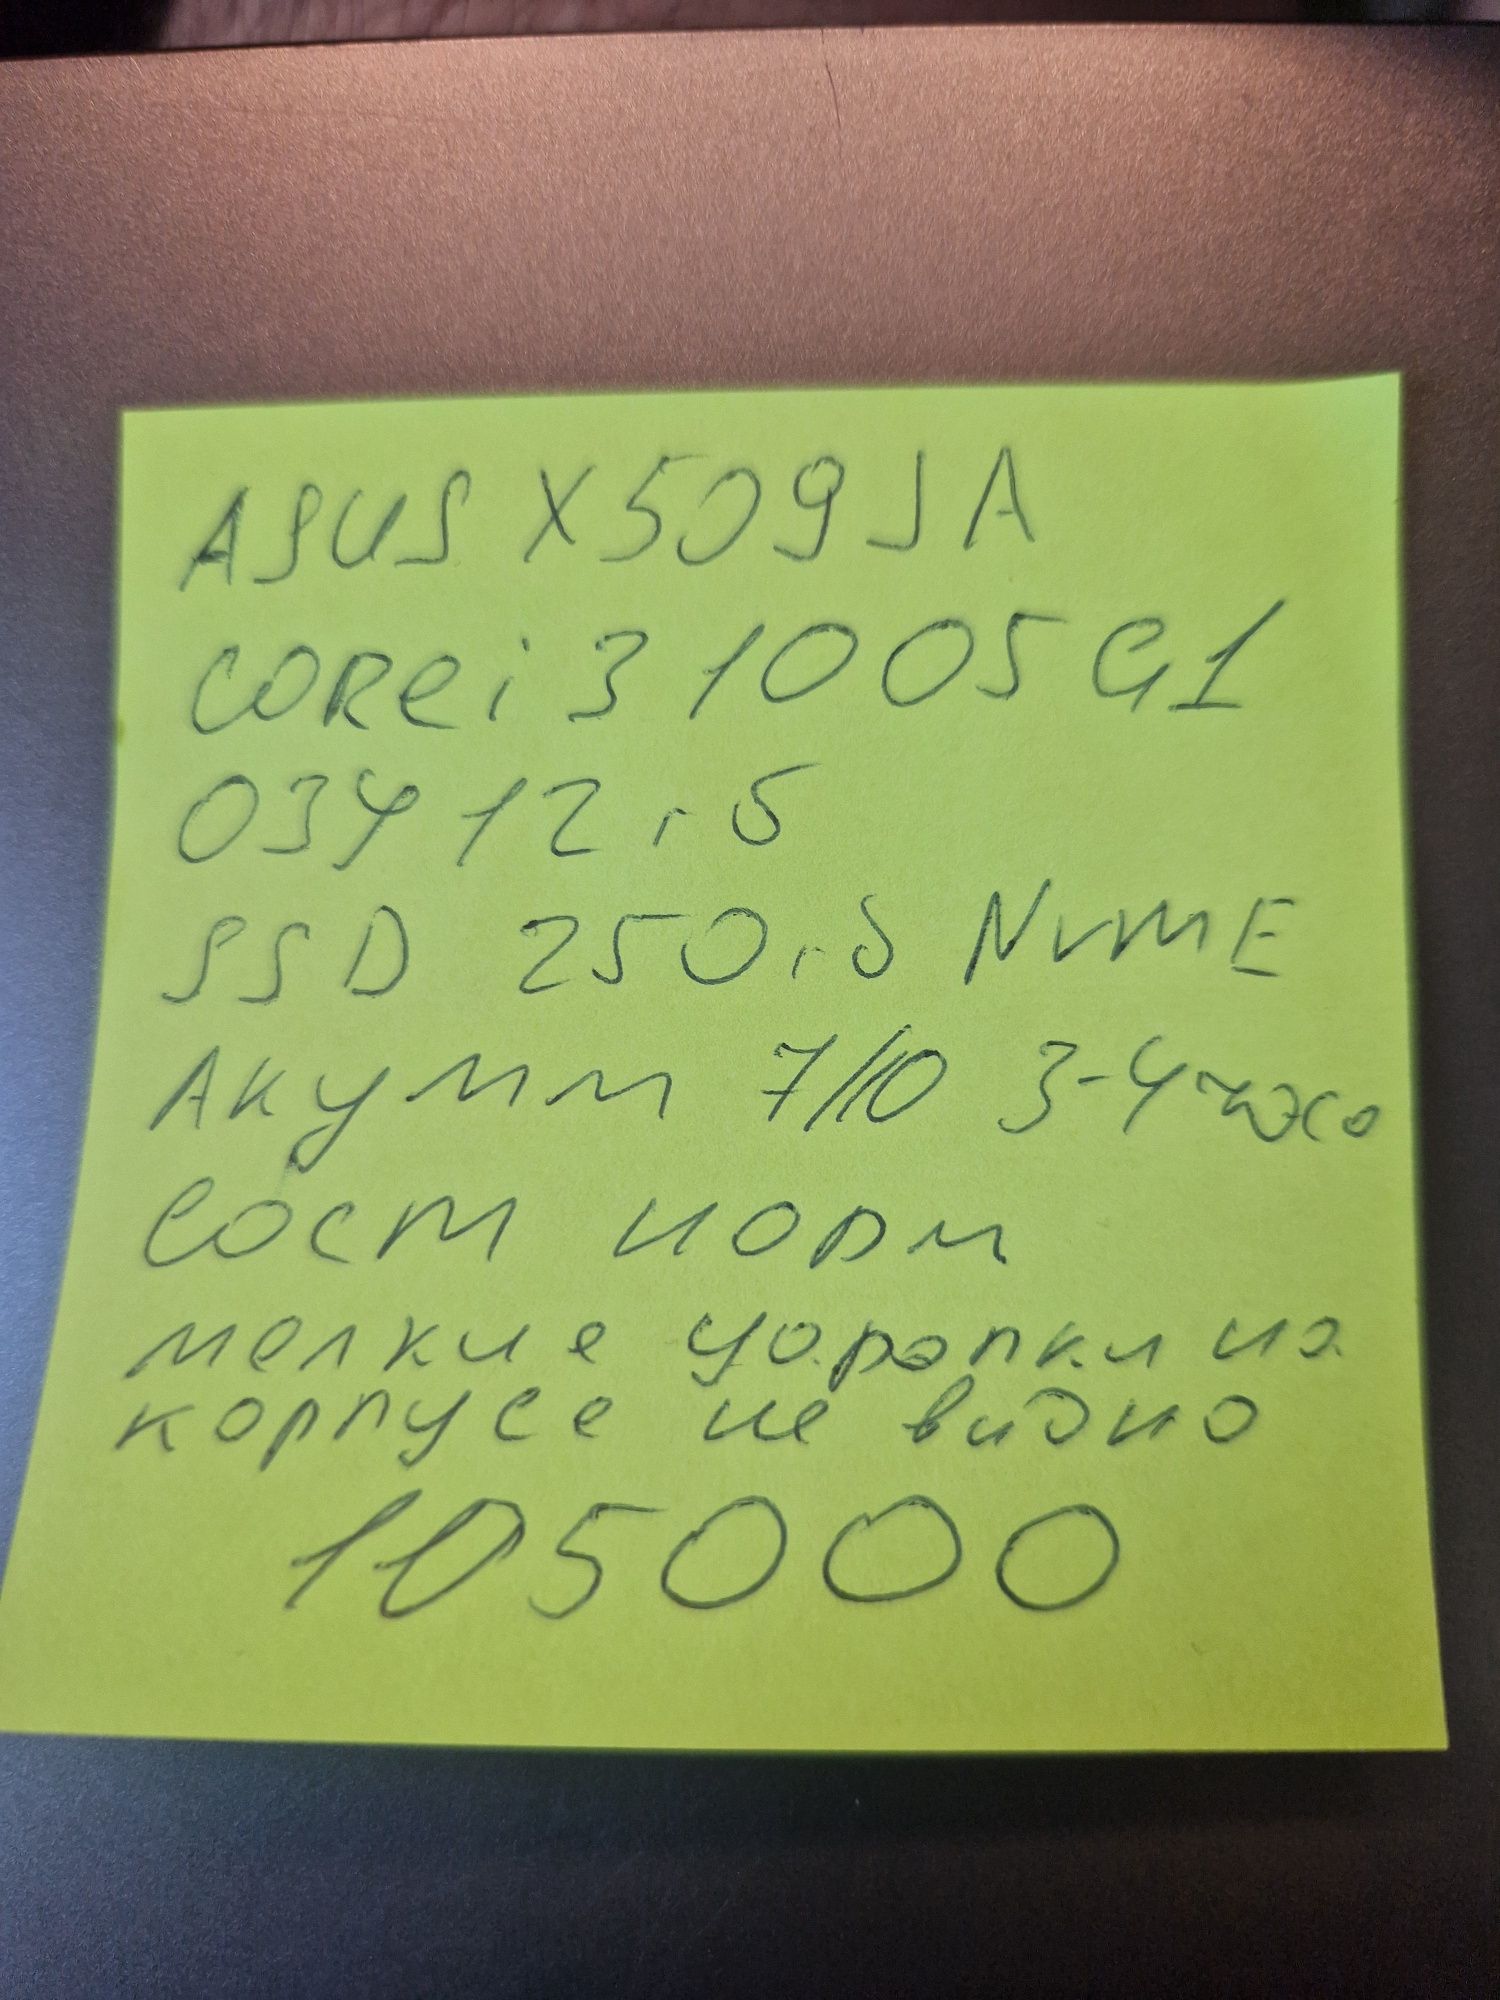 ASUS X509JA
CORei3 1005G1
ОЗУ 12гб
SSD 250гб NVME
Акумм 7/10 3-4 часа
Сост норм
мелкие царапки на
корпусе не видно
105000